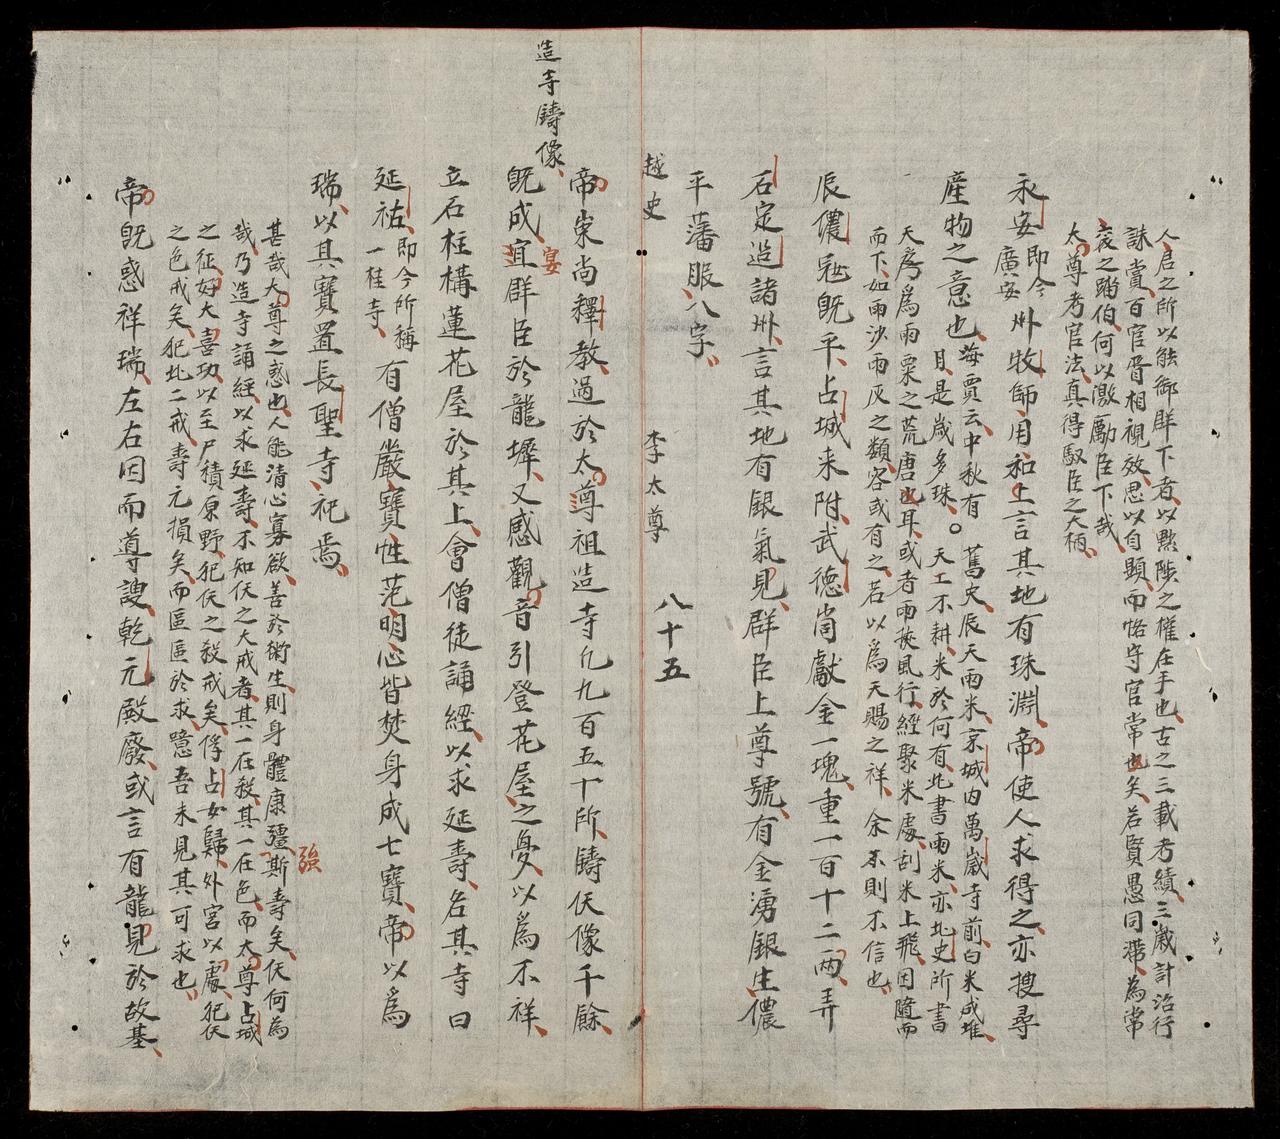 人君之所以能御群下者以黜陟之權在手也古之三載考績三歲計治行
誅賞百官胥相視效思以自顯而恪守官常也矣若賢愚同滯為常
袞之蹦伯何以激勵臣下哉
太尊考官法真得馭臣之大柄
永安即今廣安州牧師用和上言其地有珠淵帝使人求得之亦搜尋
產物之意也海賈云中秋有月是歲多珠○舊史辰天雨米京城內萬歲寺前白米成堆
天工不耕米於何有北書雨米亦北史所書
天房為雨粟之荒唐也耳或者雨挾風行經聚米處刮米上飛因隨而
而下如雨沙雨灰之類容或有之若以為天賜之祥余未則不信也
辰儂冦既平占城來附武德尚獻金一塊重一百十二兩弄
石定造諸州言其地有銀氣見群臣上尊號有金湧銀生儂
平藩服八字
越史 李太尊 八十五
造寺鑄像
帝崇尚釋教過於太尊祖造寺凢九百五十所鑄佛像千餘
既成宜宴群臣於龍墀又感觀音引登花屋之憂以為不祥
立石柱構蓮花屋於其上會僧徒誦經以求延壽名其寺曰
延祐即今所稱一柱寺有僧嚴寶性范明心皆焚身成七寶帝以為
瑞以其寶置長聖寺祀焉
甚哉大尊之惑也人能清心寡欲善於衛生則身體康彊強斯壽矣佚何為
哉乃造寺誦經以求延壽不知佚之大戒者其一在殺其一在色而太尊占城
之征好大喜功以至尸積原野犯佚之殺戒矣俘占女歸外宮以處犯佚
之色戒矣犯此二戒壽元損矣而區區於求噫吾未見其可求也
帝既惑祥瑞左右因而尊諛乾元殿廢或言有龍見於故基